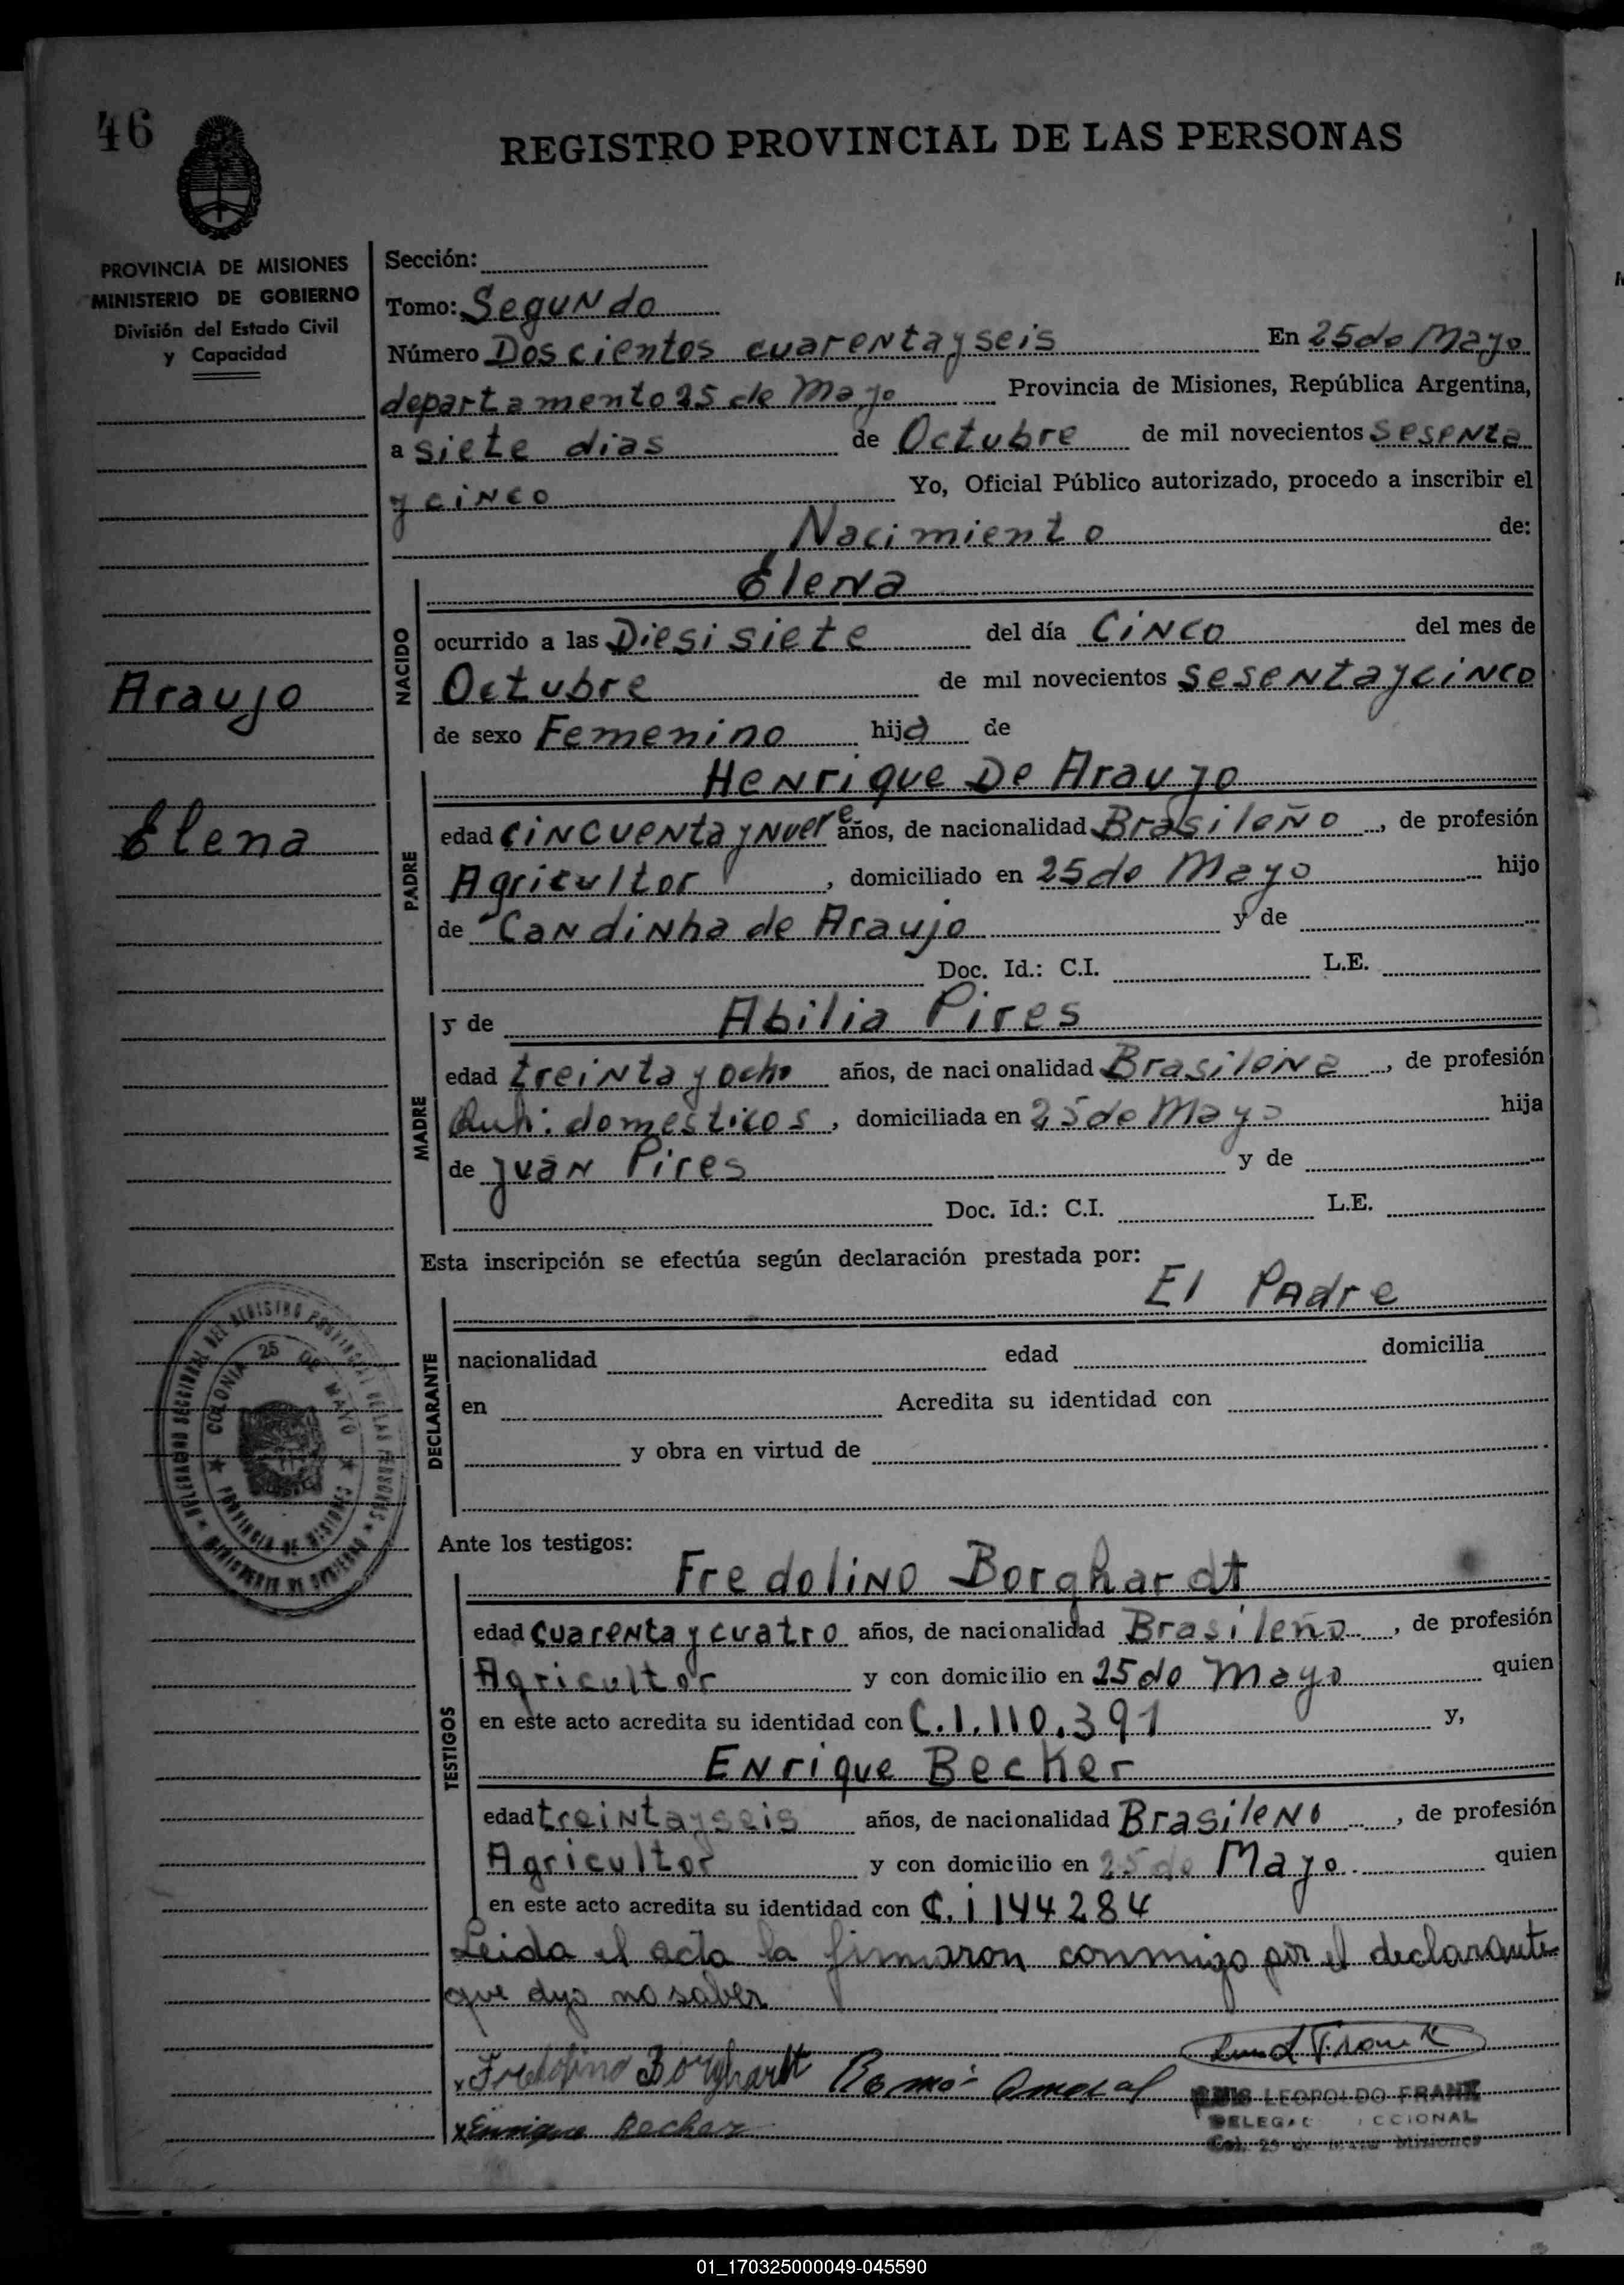 46
REGISTRO PROVINCIAL DE LAS PERSONAS
PROVINCIA DE MISIONES
MINISTERIO DE GOBIERNO
División del Estado Civil
y Capacidad
Araujo
Elena
DELEGACION SECCIONAL DEL REGISTRO PROVINCIAL DE LAS PERSONAS
MINISTERIO DE GOBIERNO
COLONIA 25 DE MAYO
PROVINCIA DE MISIONES
Sección:
Tomo: Segundo
Número Doscientos cuarentayseis En 25 de Mayo
departamento 25 de Mayo Provincia de Misiones, República Argentina,
a siete dias de Octubre de mil novecientos sesenta
y cinco Yo, Oficial Público autorizado, procedo a inscribir el
Nacimiento de:
NACIDO
Elena
ocurrido a las Diesisiete del día Cinco del mes de
Octubre de mil novecientos sesentaycinco
de sexo Femenino hija de
PADRE
Henrique De Araujo
edad cincuenta y nueve años, de nacionalidad Brasileño, de profesión
Agricultor, domiciliado en 25 de Mayo hijo
de Candinha de Araujo y de
Doc. Id.: C.I. L.E.
MADRE
y de Abilia Pires
edad treinta y ocho años, de nacionalidad Brasileña, de profesión
Quh. domesticos, domiciliada en 25 de Mayo hija
de Juan Pires y de
Doc. Id.: C.I. L.E.
Esta inscripción se efectúa según declaración prestada por:
El Padre
DECLARANTE
nacionalidad edad domicilia
en Acredita su identidad con
y obra en virtud de
Ante los testigos:
TESTIGOS
Fredolino Borghardt
edad cuarenta y cuatro años, de nacionalidad Brasileño, de profesión
Agricultor y con domicilio en 25 de Mayo quien
en este acto acredita su identidad con C.I.110.391 y,
Enrique Becker
edad treintayseis años, de nacionalidad Brasileno, de profesión
Agricultor y con domicilio en 25 de Mayo quien
en este acto acredita su identidad con C.i 144284
Leida el acta la firmaron conmigo por el declarante
que dijo no saber
x Fredolino Borghardt Ramón Amaral
x Enrique Becker
LUIS LEOPOLDO FRANK
Col. 25 de Mayo Misiones
01_170325000049-045590